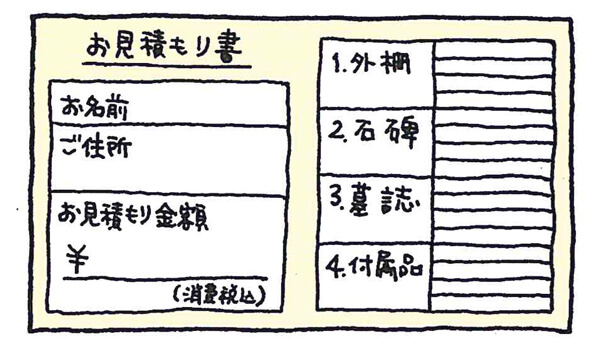 お見積もり書
お名前
ご住所
お見積もり金額
¥
(消費税込)
1.外柵
2.石碑
3.墓誌
4.付属品